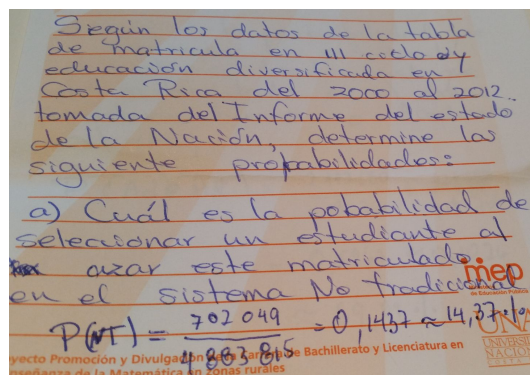 Según los datos de la tabla
de matricula en III ciclo y
educación diversificada en
Costa Rica del 2000 al 2012
tomada del Informe del estado
de la Nación, determine las
siguiente probabilidades:
a) Cuál es la pobabilidad de
seleccionar un estudiante al
azar este matriculado
en el sistema No tradicional
P(NT) = 702 049 / 4 883 815 = 0,1437 ≈ 14,37%
mep
de Educación Pública
UNA
UNIVERSI
NACIO
yecto Promoción y Divulgación de Bachillerato y Licenciatura en
nseñanza de la Matemática en zonas rurales